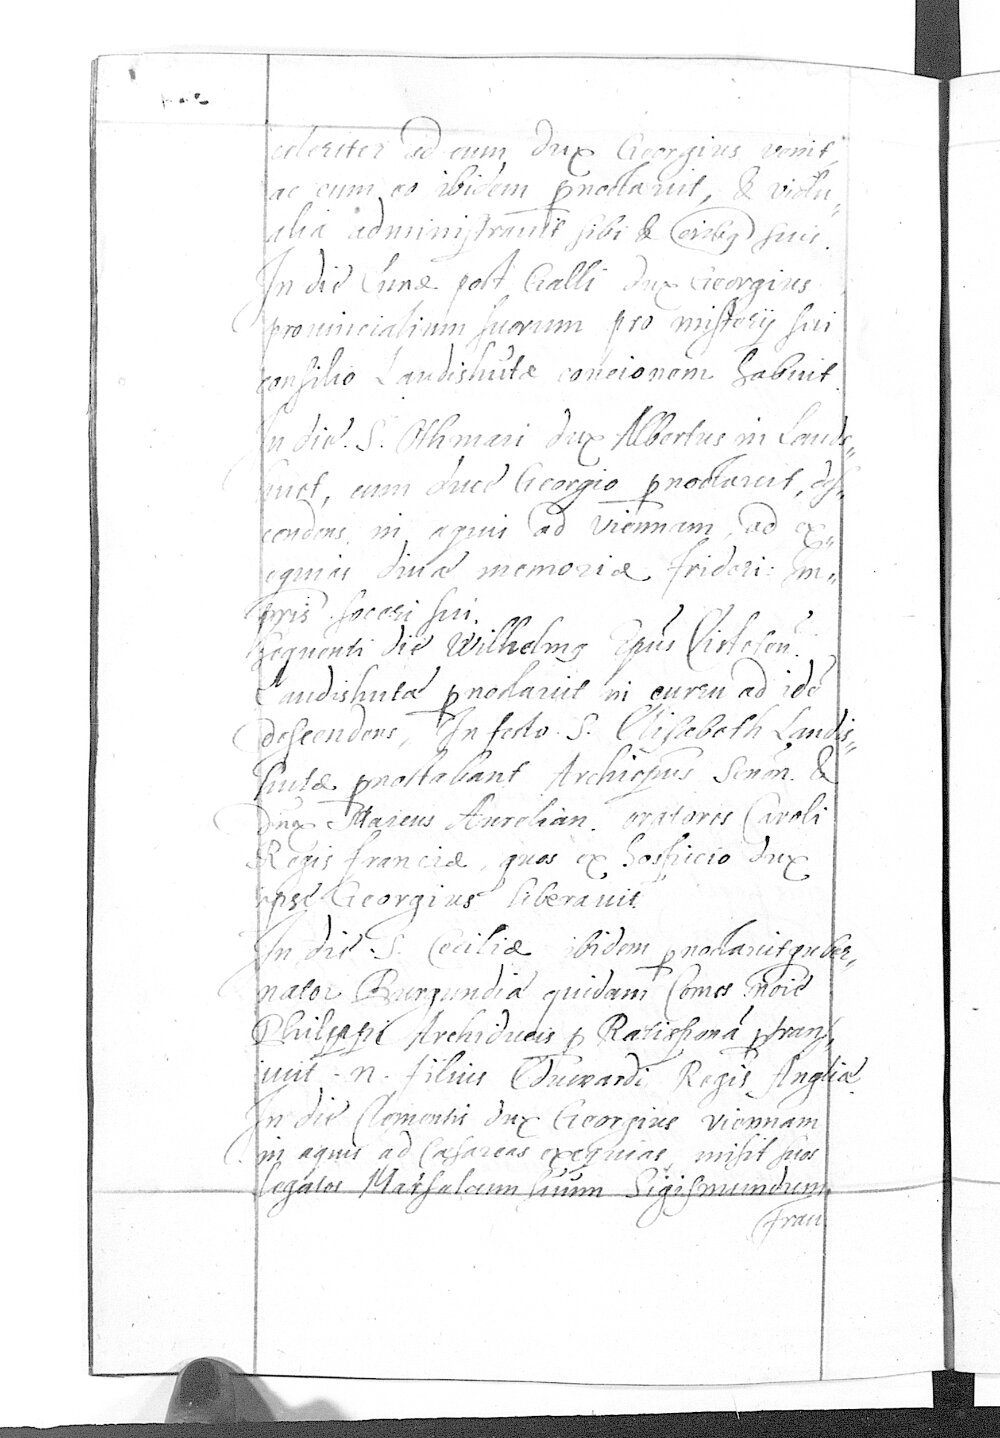 celeriter ad eum dux Georgius venit,
ac cum eo ibidem pnoctavit, & victu„
alia administravit sibi & oibq suis.
In die Lunæ post Galli dux Georgius
provincialium suorum pro misterij sui
consilio Landishutæ concionem habuit.
In die. S. Othmari dux Albertus in Lands„
huet, cum duce Georgio pnoctavit, des„
cendens in aquis ad Viennam, ad ex„
equias divæ memoriæ frideri: Im„
pris soceri sui.
Sequenti die Wilhelmg Epūs Eisteten.
Landishutæ pnoctavit in curru ad idē
descendens, In festo S. Elisabeth Landis„
hutæ pnoctabant Archiepus Senon. &
dnus Marcus Aurelian. oratores Caroli
Regis franciæ, quos ex hospicio dux
ipse Georgius liberavit.
In die S. Ceciliæ ibidem pnoctavit guber„
nator Burgundiæ quidam Comes noie
Philippi Archiducis p Ratisponā ptran„
sivit .n. filius Eduuardi Regis Angliæ.
In die Clementis dux Georgius Viennam
in aquis ad Cæsareas exequias, misit suos
legatos Marsalcum suum Sigismundum
frau